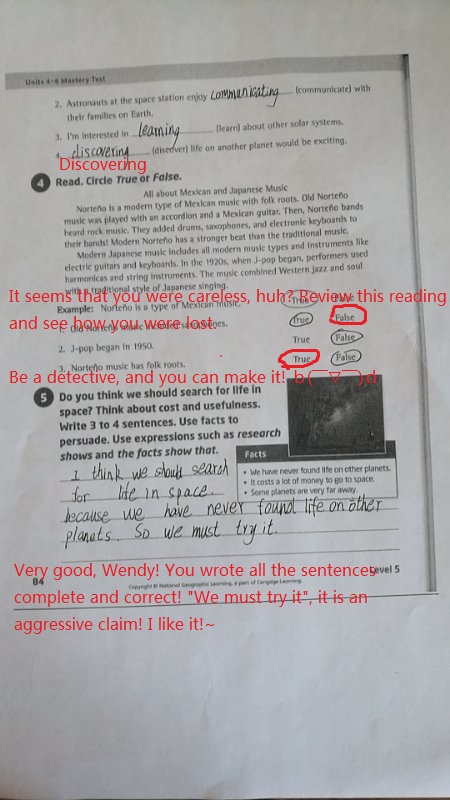 Units 4–6 Mastery Test
2. Astronauts at the space station enjoy communicating (communicate) with
their families on Earth.
3. I'm interested in learning (learn) about other solar systems.
4. discovering (discover) life on another planet would be exciting.
Discovering
4 Read. Circle True or False.
All about Mexican and Japanese Music
Norteño is a modern type of Mexican music with folk roots. Old Norteño
music was played with an accordion and a Mexican guitar. Then, Norteño bands
heard rock music. They added drums, saxophones, and electronic keyboards to
their bands! Modern Norteño has a stronger beat than the traditional music.
Modern Japanese music includes all modern music types and instruments like
electric guitars and keyboards. In the 1920s, when J-pop began, performers used
harmonicas and string instruments. The music combined Western Jazz and soul
with a traditional style of Japanese singing.
It seems that you were careless, huh? Review this reading
Example: Norteño is a type of Mexican music. True False
and see how you were lost.
1. Old Norteño music saxophones. True False
2. J-pop began in 1950. True False
3. Norteño music has folk roots. True False
Be a detective, and you can make it! b(￣▽￣)d
5 Do you think we should search for life in
space? Think about cost and usefulness.
Write 3 to 4 sentences. Use facts to
persuade. Use expressions such as research
shows and the facts show that.
Facts
• We have never found life on other planets.
• It costs a lot of money to go to space.
• Some planets are very far away.
I think we should search
for life in space.
because we have never found life on other
planets. So we must try it.
Very good, Wendy! You wrote all the sentences
Level 5
84
Copyright © National Geographic Learning, a part of Cengage Learning
complete and correct! "We must try it", it is an
aggressive claim! I like it!~